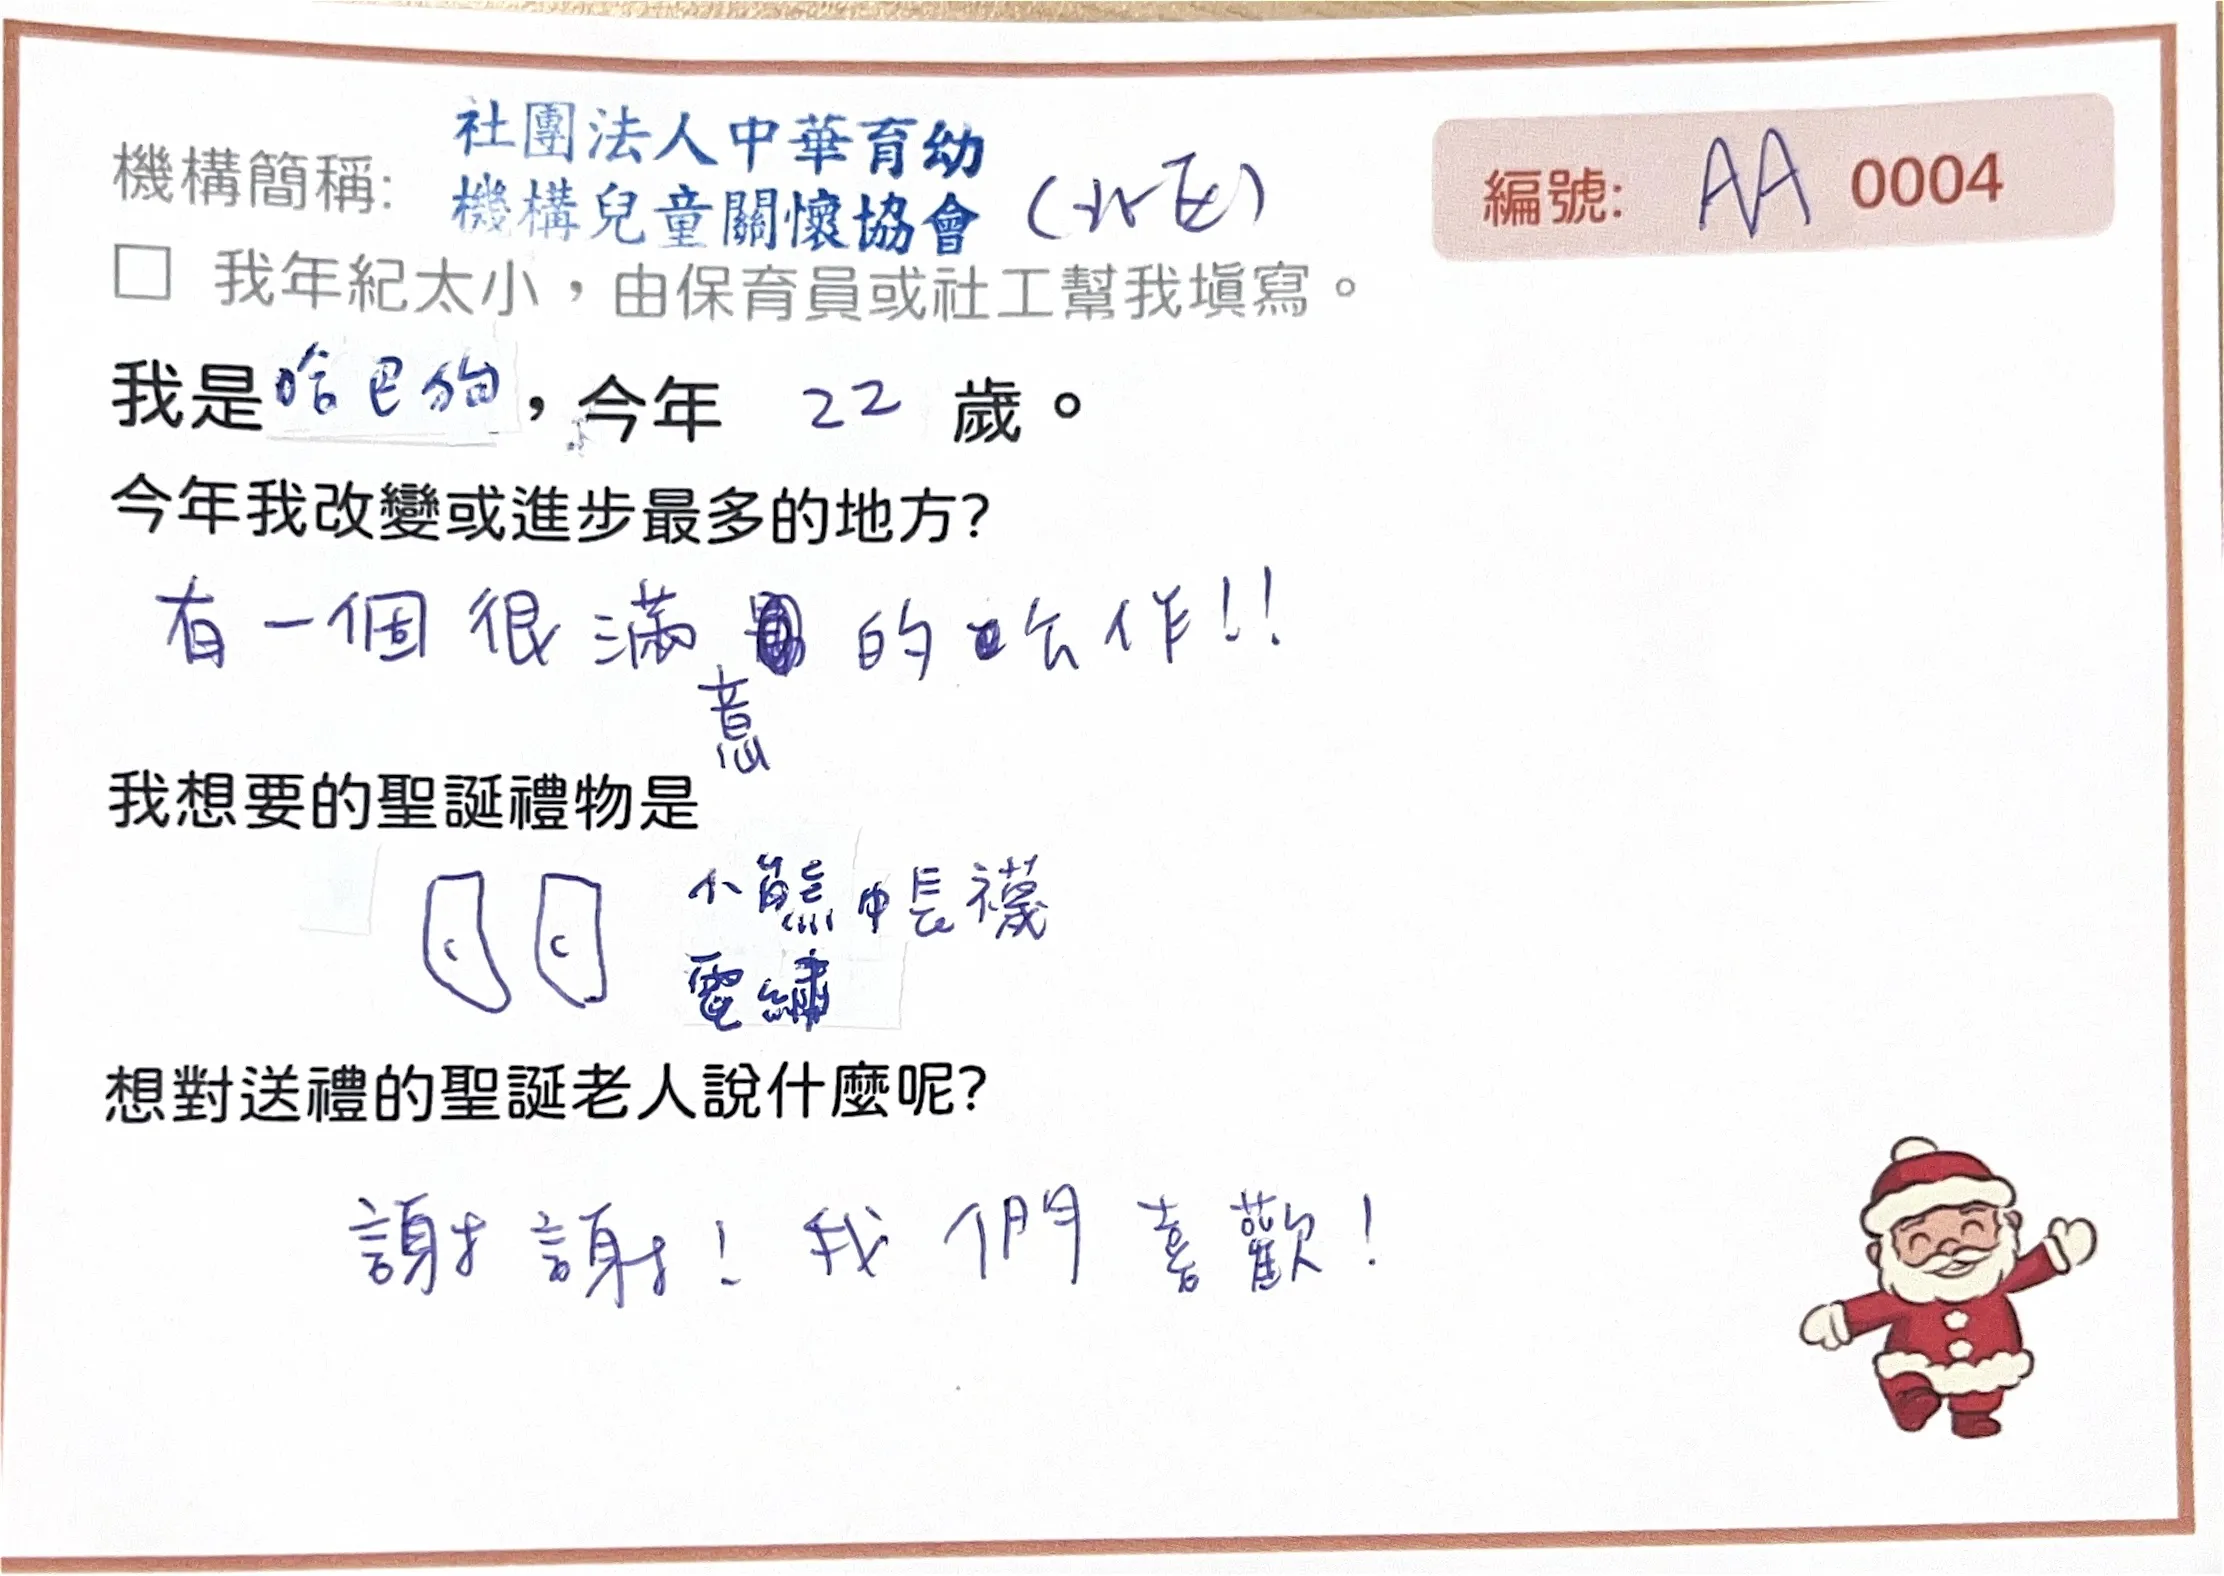 社團法人中華育幼
機構簡稱: 機構兒童關懷協會 (北區)
編號: AA 0004
□ 我年紀太小，由保育員或社工幫我填寫。
我是哈巴狗，今年 22 歲。
今年我改變或進步最多的地方?
有一個很滿意的 作!!
我想要的聖誕禮物是
C C 小熊中長襪
電繡
想對送禮的聖誕老人說什麼呢?
謝謝! 我們喜歡!